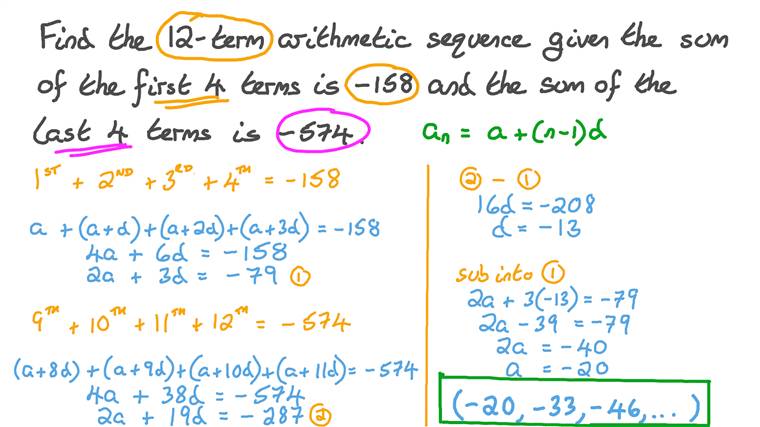 Find the 12-term arithmetic sequence given the sum
of the first 4 terms is -158 and the sum of the
last 4 terms is -574.
aₙ = a + (n-1)d
1ST + 2ND + 3RD + 4TH = -158
a + (a+d) + (a+2d) + (a+3d) = -158
4a + 6d = -158
2a + 3d = -79 ①
9TH + 10TH + 11TH + 12TH = -574
(a+8d) + (a+9d) + (a+10d) + (a+11d) = -574
4a + 38d = -574
2a + 19d = -287 ②
② - ①
16d = -208
d = -13
sub into ①
2a + 3(-13) = -79
2a - 39 = -79
2a = -40
a = -20
(-20, -33, -46, ...)